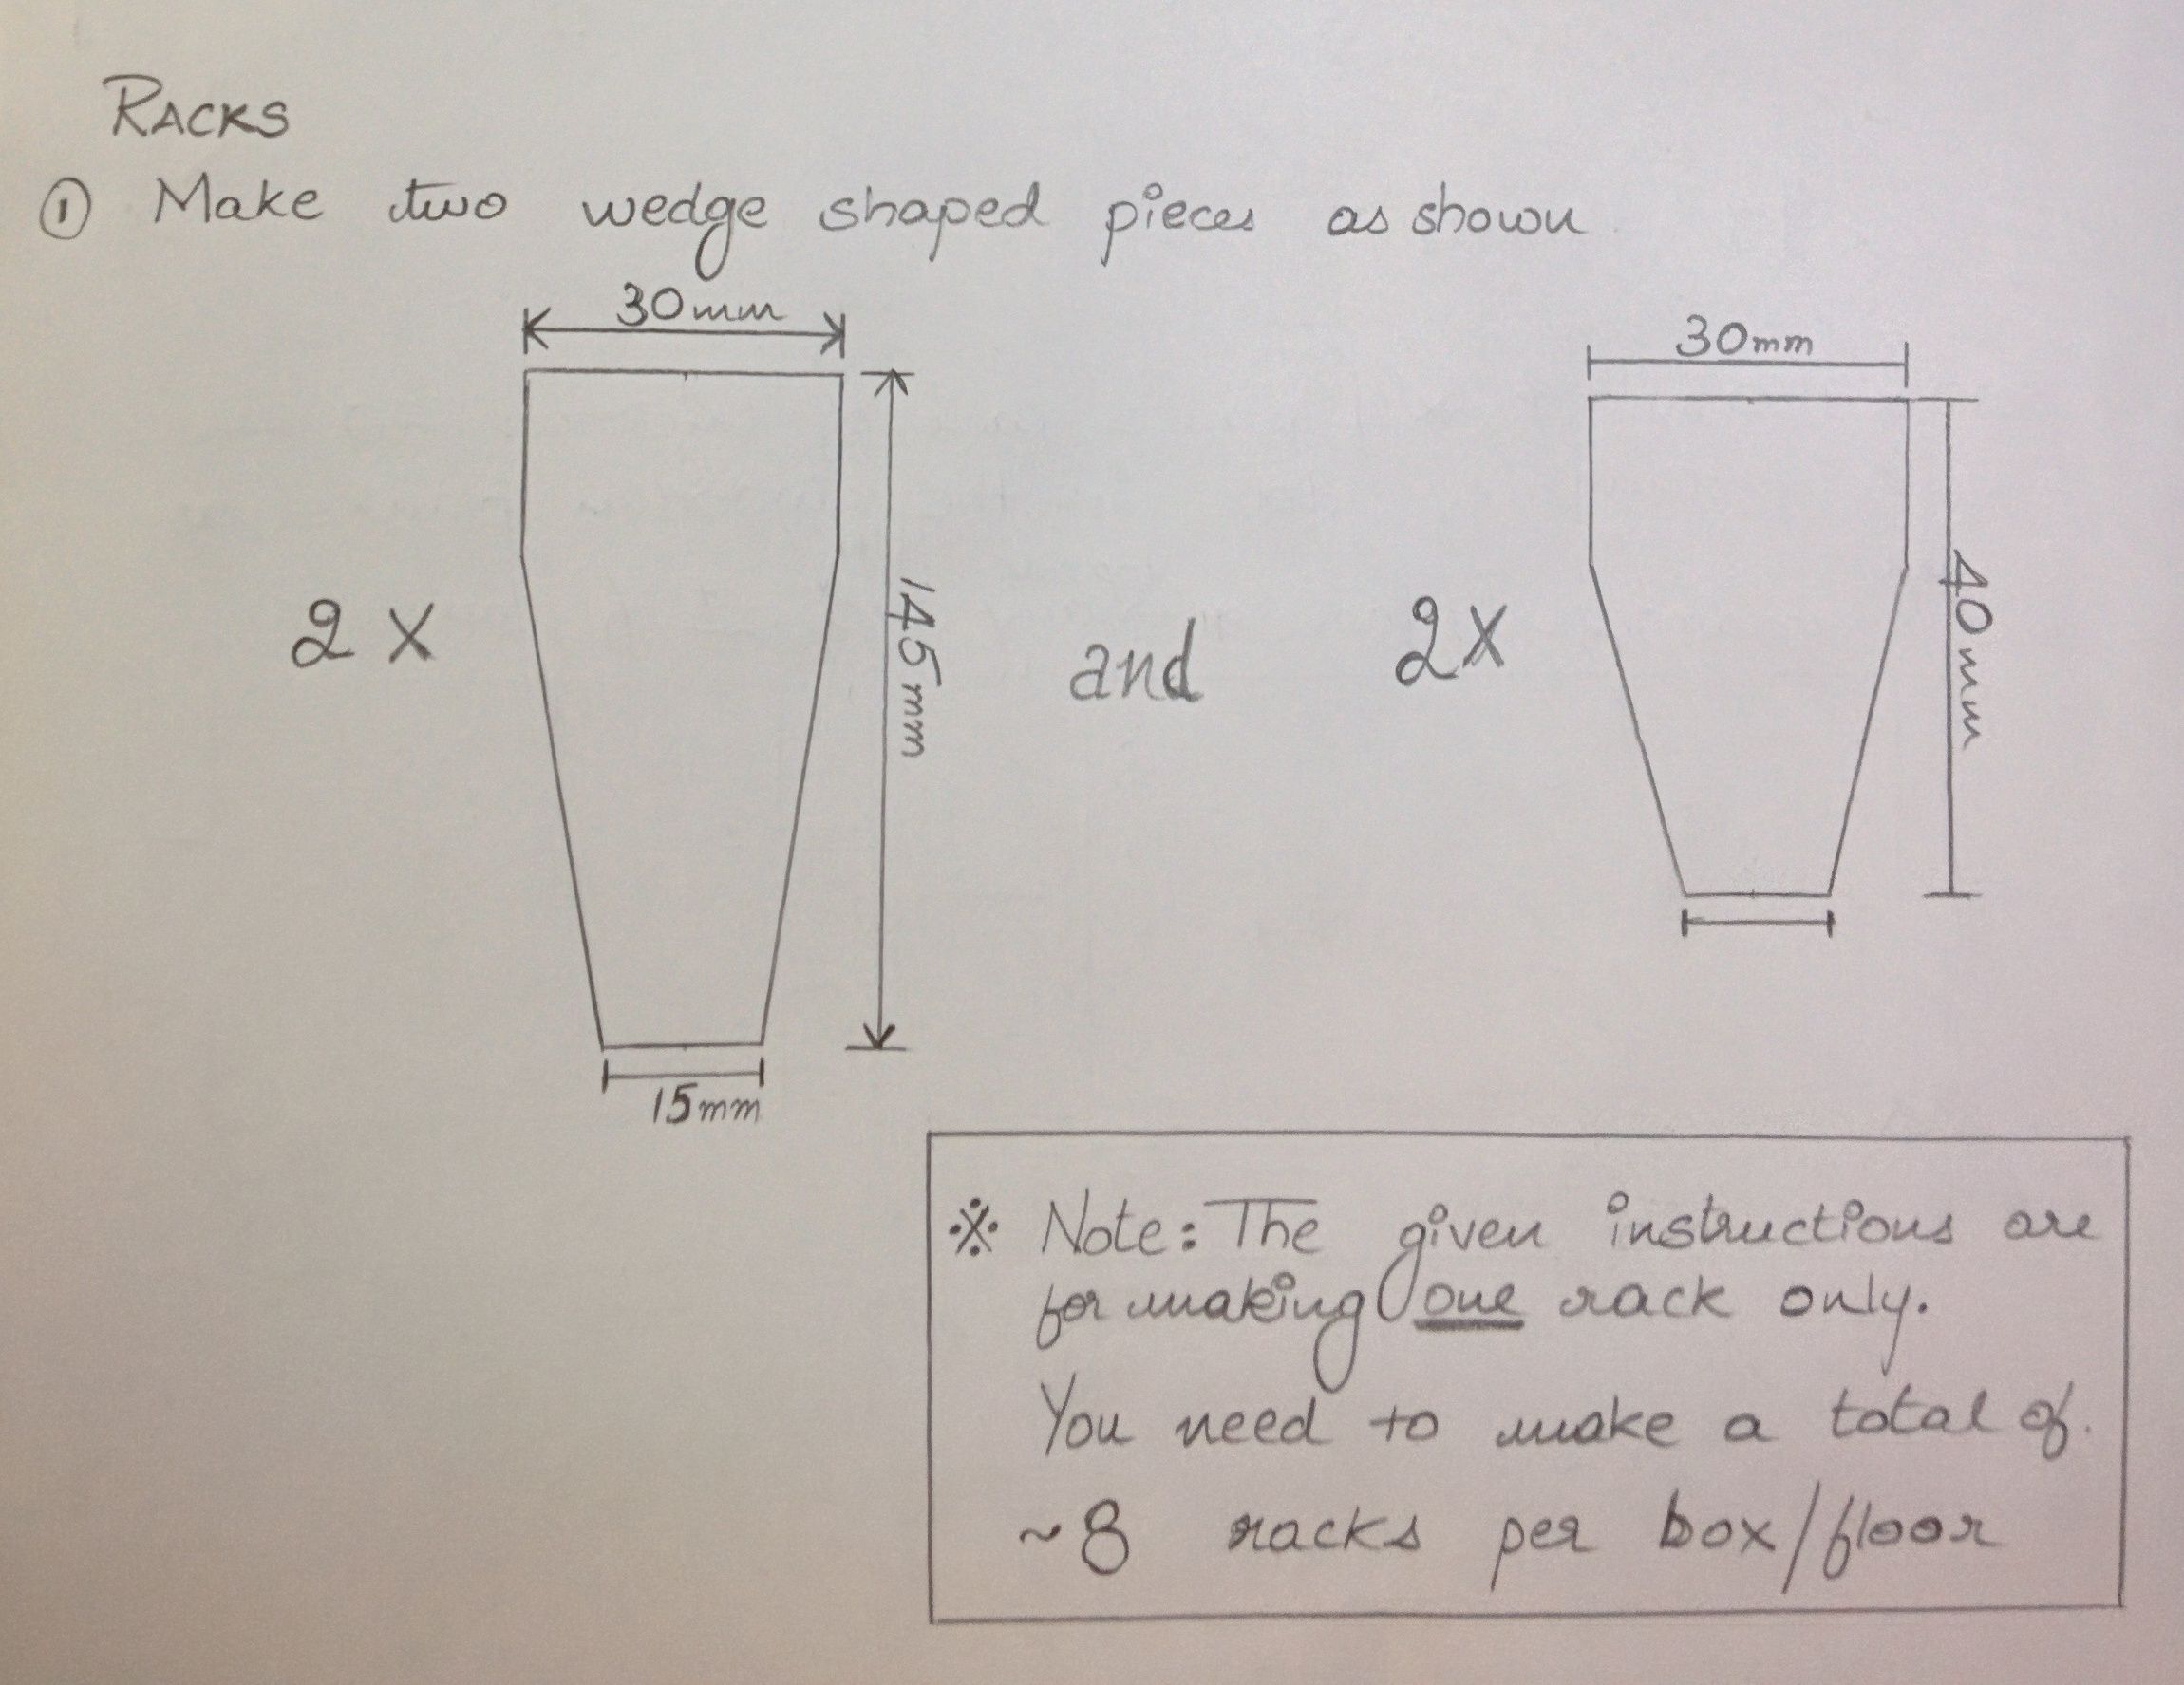 RACKS
① Make two wedge shaped pieces as shown
30mm
30mm
2 X
145mm
and
2X
40mm
15mm
※ Note: The given instructions are
for making one rack only.
You need to make a total of
~8 racks per box/floor